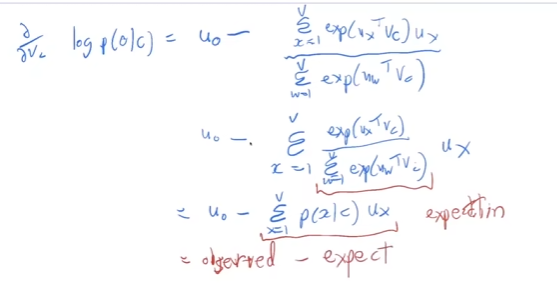 ∂/∂v_c log p(o|c) = u_o − (Σ_{x=1}^{V} exp(u_x^T v_c) u_x) / (Σ_{w=1}^{V} exp(u_w^T v_c))
u_o − Σ_{x=1}^{V} (exp(u_x^T v_c) / Σ_{w=1}^{V} exp(u_w^T v_c)) u_x
= u_o − Σ_{x=1}^{V} p(x|c) u_x expectin
= observed − expect